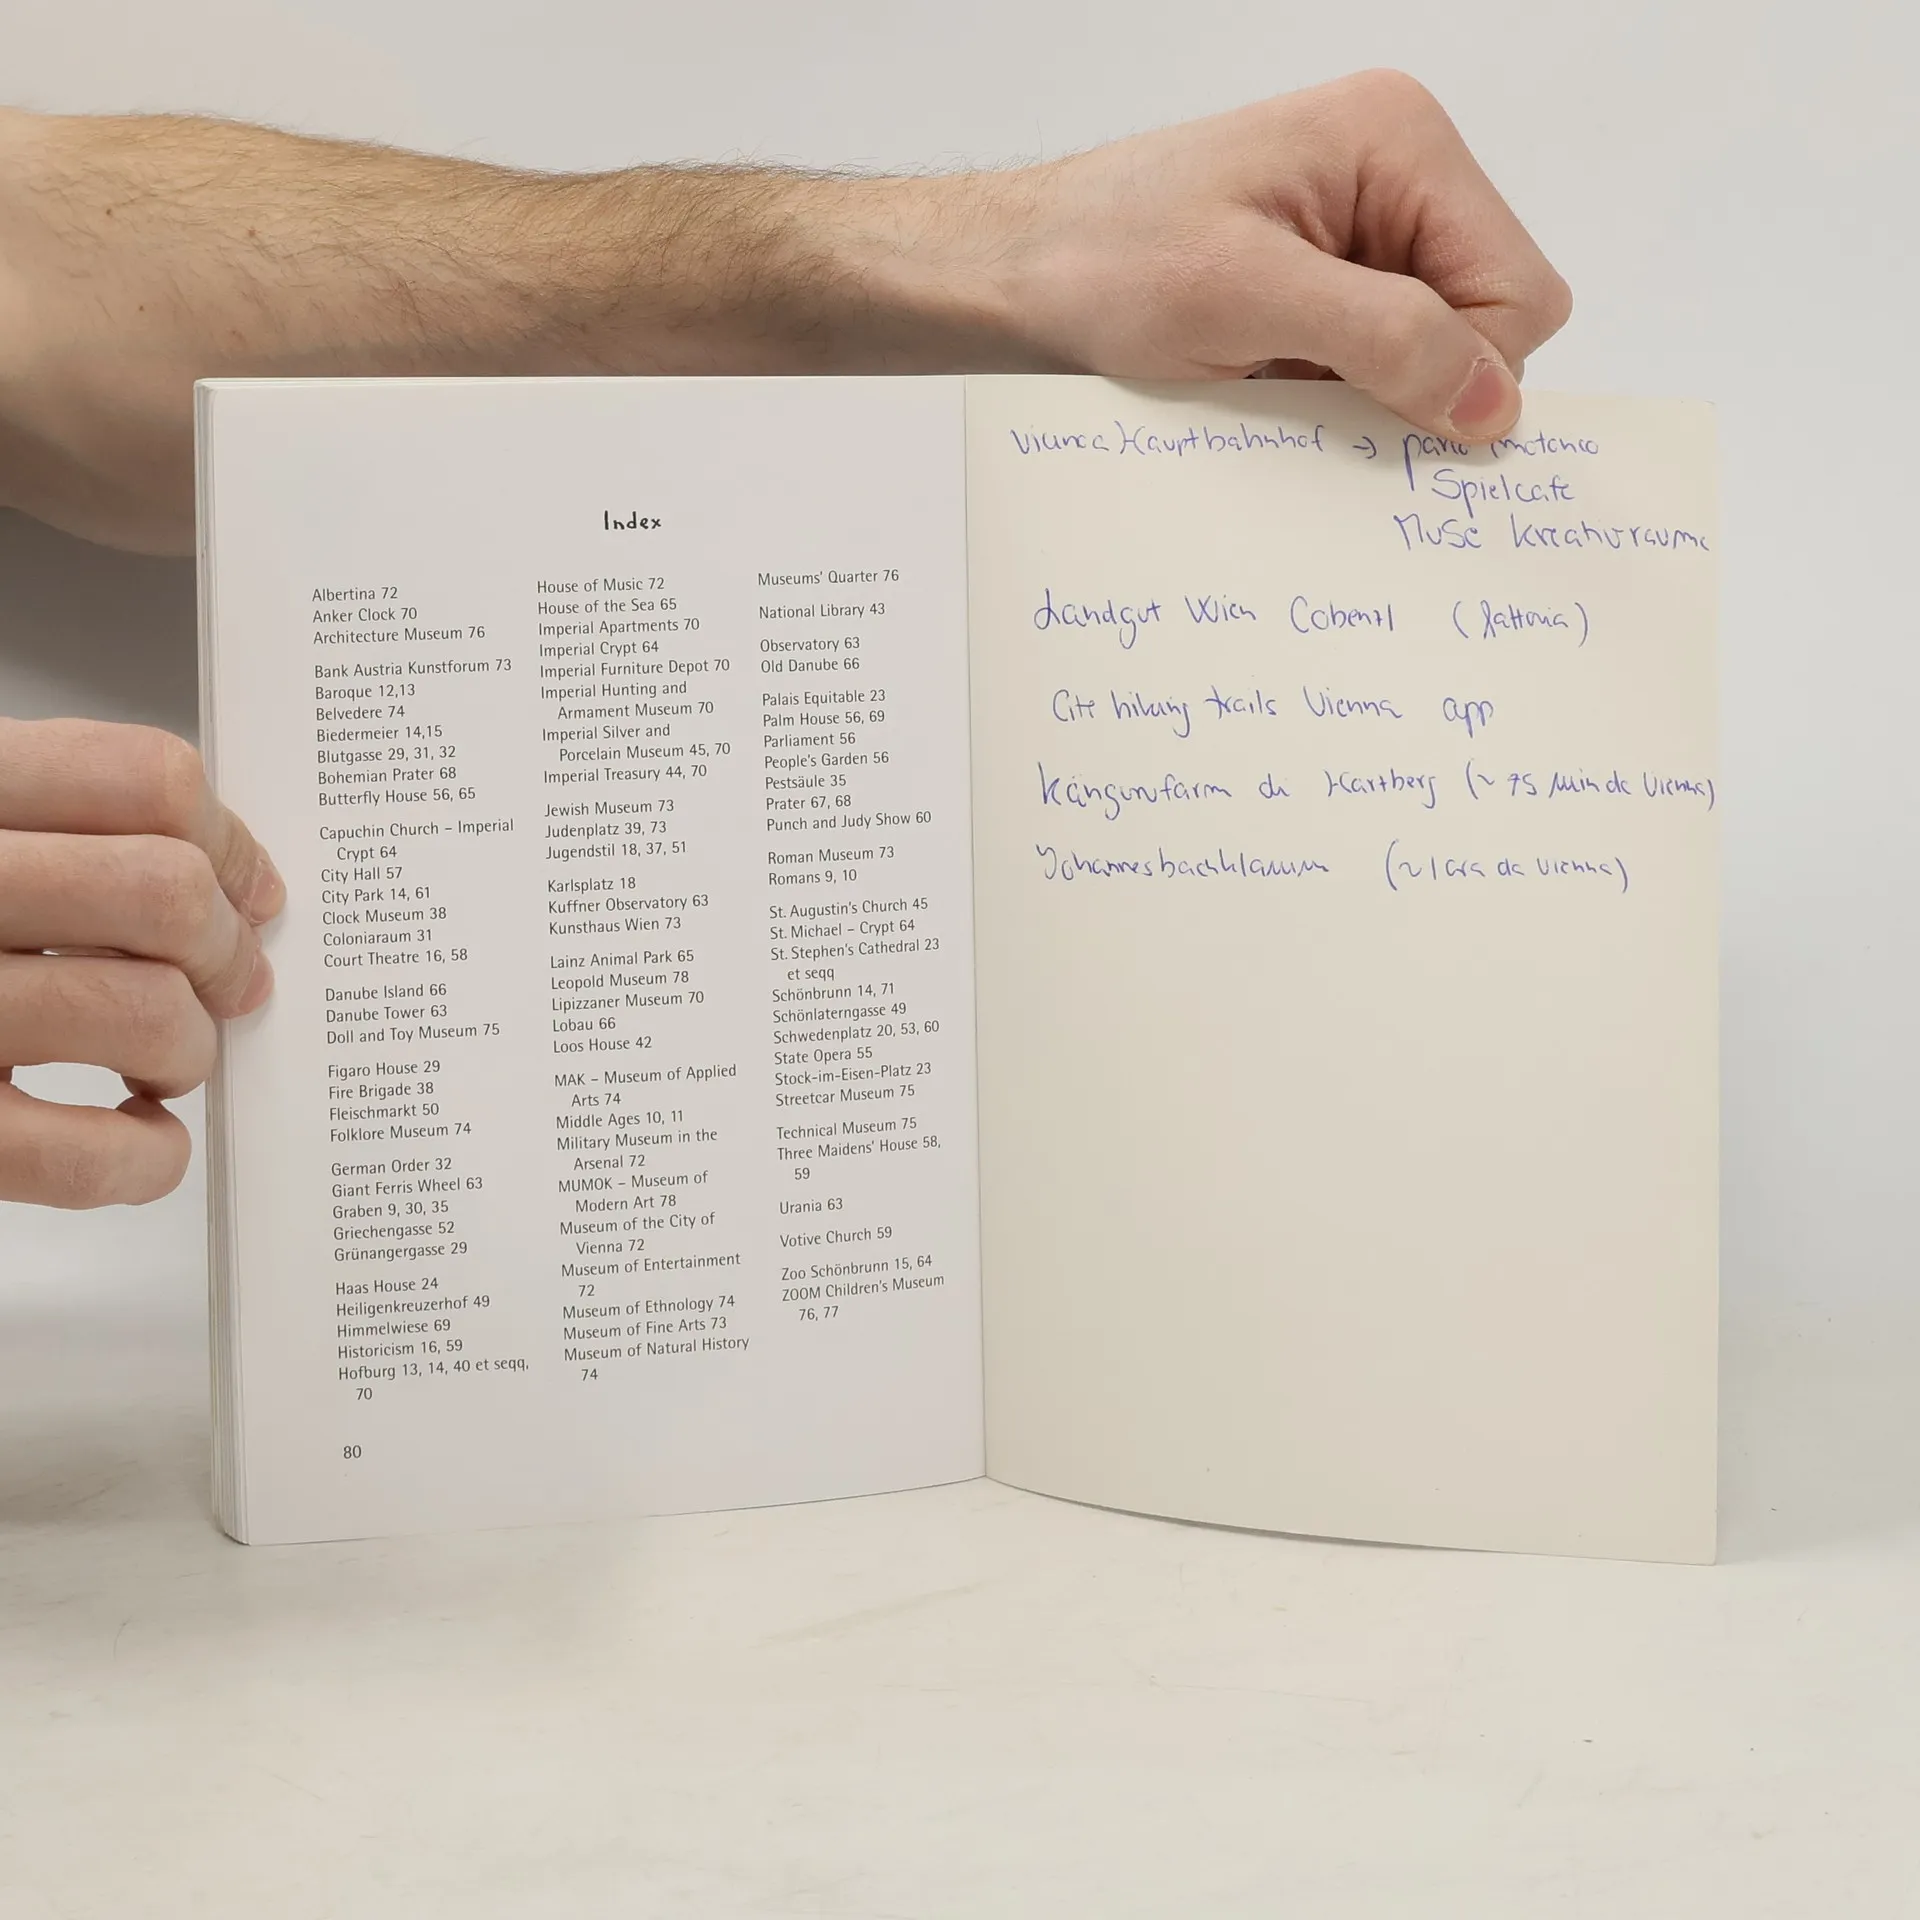 Index
Albertina 72
Anker Clock 70
Architecture Museum 76
Bank Austria Kunstforum 73
Baroque 12,13
Belvedere 74
Biedermeier 14,15
Blutgasse 29, 31, 32
Bohemian Prater 68
Butterfly House 56, 65
Capuchin Church – Imperial
Crypt 64
City Hall 57
City Park 14, 61
Clock Museum 38
Coloniaraum 31
Court Theatre 16, 58
Danube Island 66
Danube Tower 63
Doll and Toy Museum 75
Figaro House 29
Fire Brigade 38
Fleischmarkt 50
Folklore Museum 74
German Order 32
Giant Ferris Wheel 63
Graben 9, 30, 35
Griechengasse 52
Grünangergasse 29
Haas House 24
Heiligenkreuzerhof 49
Himmelwiese 69
Historicism 16, 59
Hofburg 13, 14, 40 et seqq,
70
House of Music 72
House of the Sea 65
Imperial Apartments 70
Imperial Crypt 64
Imperial Furniture Depot 70
Imperial Hunting and
Armament Museum 70
Imperial Silver and
Porcelain Museum 45, 70
Imperial Treasury 44, 70
Jewish Museum 73
Judenplatz 39, 73
Jugendstil 18, 37, 51
Karlsplatz 18
Kuffner Observatory 63
Kunsthaus Wien 73
Lainz Animal Park 65
Leopold Museum 78
Lipizzaner Museum 70
Lobau 66
Loos House 42
MAK – Museum of Applied
Arts 74
Middle Ages 10, 11
Military Museum in the
Arsenal 72
MUMOK – Museum of
Modern Art 78
Museum of the City of
Vienna 72
Museum of Entertainment
72
Museum of Ethnology 74
Museum of Fine Arts 73
Museum of Natural History
74
Museums' Quarter 76
National Library 43
Observatory 63
Old Danube 66
Palais Equitable 23
Palm House 56, 69
Parliament 56
People's Garden 56
Pestsäule 35
Prater 67, 68
Punch and Judy Show 60
Roman Museum 73
Romans 9, 10
St. Augustin's Church 45
St. Michael – Crypt 64
St. Stephen's Cathedral 23
et seqq
Schönbrunn 14, 71
Schönlaterngasse 49
Schwedenplatz 20, 53, 60
State Opera 55
Stock-im-Eisen-Platz 23
Streetcar Museum 75
Technical Museum 75
Three Maidens' House 58,
59
Urania 63
Votive Church 59
Zoo Schönbrunn 15, 64
ZOOM Children's Museum
76, 77
80
Vienna Hauptbahnhof →
Spielcafe
Muse kreativraume
Landgut Wien Cobenzl (fattoria)
hiking trails Vienna app
Kängurufarm di Hartberg (~ 75 min da Vienna)
Johannesbachklamm (~1 ora da Vienna)